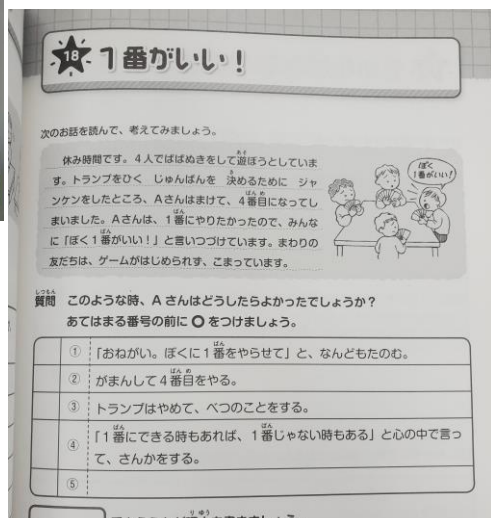 18 1番がいい！
次のお話を読んで、考えてみましょう。
休み時間です。4人でばばぬきをして遊ぼうとしていま
す。トランプをひく じゅんばんを 決めるために ジャ
ンケンをしたところ、Aさんはまけて、4番目になってし
まいました。Aさんは、1番にやりたかったので、みんな
に「ぼく1番がいい！」と言いつづけています。まわりの
友だちは、ゲームがはじめられず、こまっています。
ぼく
1番がいい！
質問 このような時、Aさんはどうしたらよかったでしょうか？
あてはまる番号の前に○をつけましょう。
① 「おねがい。ぼくに1番をやらせて」と、なんどもたのむ。
② がまんして4番目をやる。
③ トランプはやめて、べつのことをする。
④ 「1番にできる時もあれば、1番じゃない時もある」と心の中で言っ
て、さんかをする。
⑤